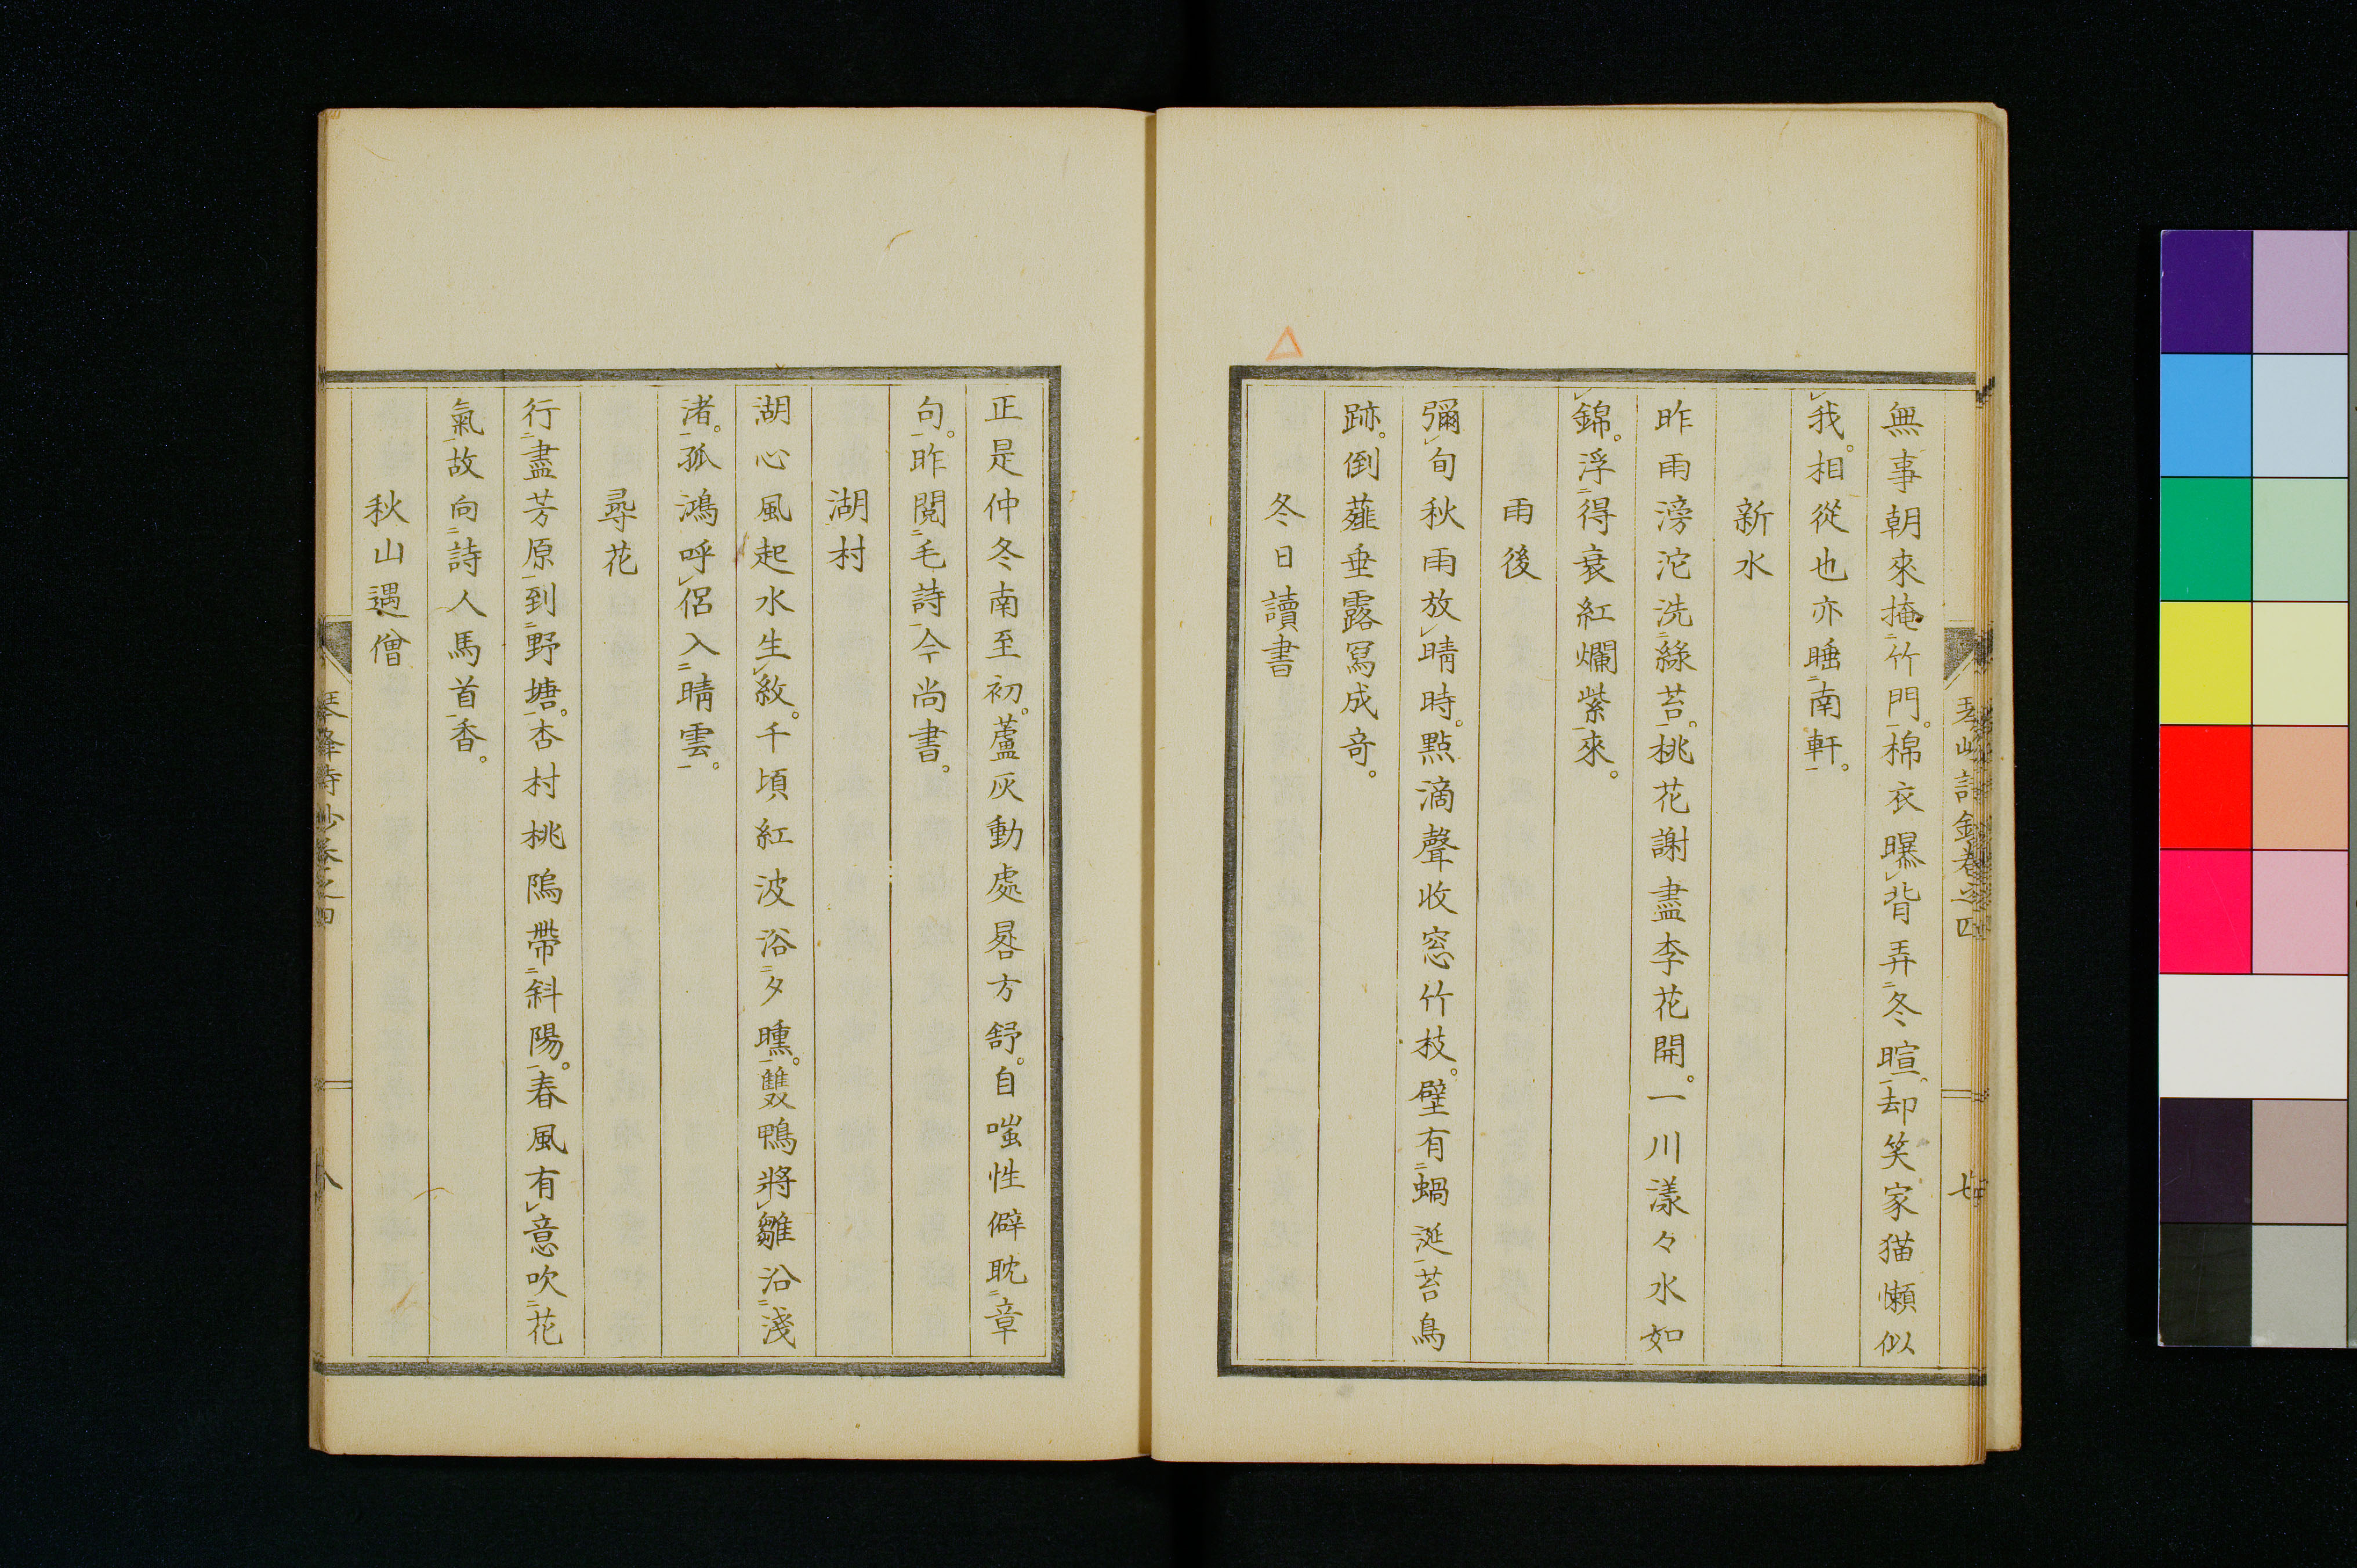 無事朝來掩二竹門一。棉衣曝レ背弄二冬暄一。却笑家猫懶似
レ我。相從也亦睡二南軒一。
新水
昨雨滂沱洗二綠苔一。桃花謝盡李花開。一川漾々水如
レ錦。浮二得衰紅爛紫一來。
雨後
彌レ旬秋雨放レ晴時。點滴聲收窓竹枝。壁有二蝸涎一苔鳥
跡。倒薤垂露寫成奇。
冬日讀書
正是仲冬南至初。蘆灰動處晷方舒。自嗤性僻耽二章
句一。昨閲二毛詩一今尚書。
湖村
湖心風起水生レ紋。千頃紅波浴二夕曛一。雙鴨將レ雛沿二淺
渚一。孤鴻呼レ侶入二晴雲一。
尋花
行二盡芳原一到二野塘一。杏村桃隖帶二斜陽一。春風有レ意吹二花
氣一。故向二詩人馬首一香。
秋山遇僧
琴峰詩鈔卷之四
七
琴峰詩鈔卷之四
八